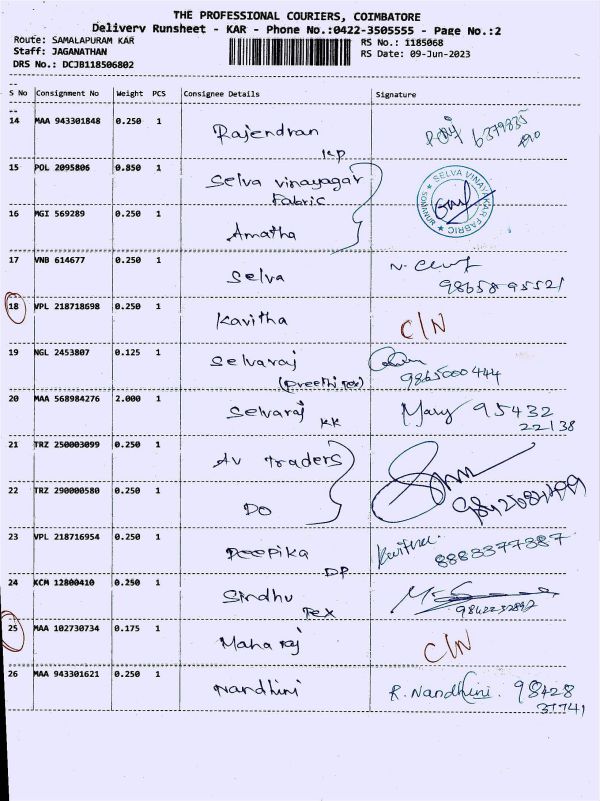 THE PROFESSIONAL COURIERS, COIMBATORE
Delivery Runsheet - KAR - Phone No.:0422-3505555 - Page No.:2
Route: SAMALAPURAM KAR RS No.: 1185068
Staff: JAGANATHAN RS Date: 09-Jun-2023
DRS No.: DCJB118506802
S No Consignment No Weight PCS Consignee Details Signature
14 MAA 943301848 0.250 1 Rajendran 6379835
KP 490
15 POL 2095806 0.850 1 Selva vinayagar
Fabric
SELVA VINAYAKAR FABRIC
SOMANUR
16 MGI 569289 0.250 1 Amatha
17 VNB 614677 0.250 1 Selva
9865895521
18 VPL 218718698 0.250 1 Kavitha C/N
19 NGL 2453807 0.125 1 Selvaraj
9865000444
20 MAA 568984276 2.000 1 Selvaraj KK Mary 95432
22138
21 TRZ 250003099 0.250 1 AV traders
22 TRZ 290000580 0.250 1 DO
23 VPL 218716954 0.250 1 Deepika Kavitha
DP 8883377887
24 KCM 12800410 0.250 1 Sindhu
Tex
25 MAA 102730734 0.175 1 Maharaj C/N
26 MAA 943301621 0.250 1 Nandhini R. Nandhini. 98428
37741